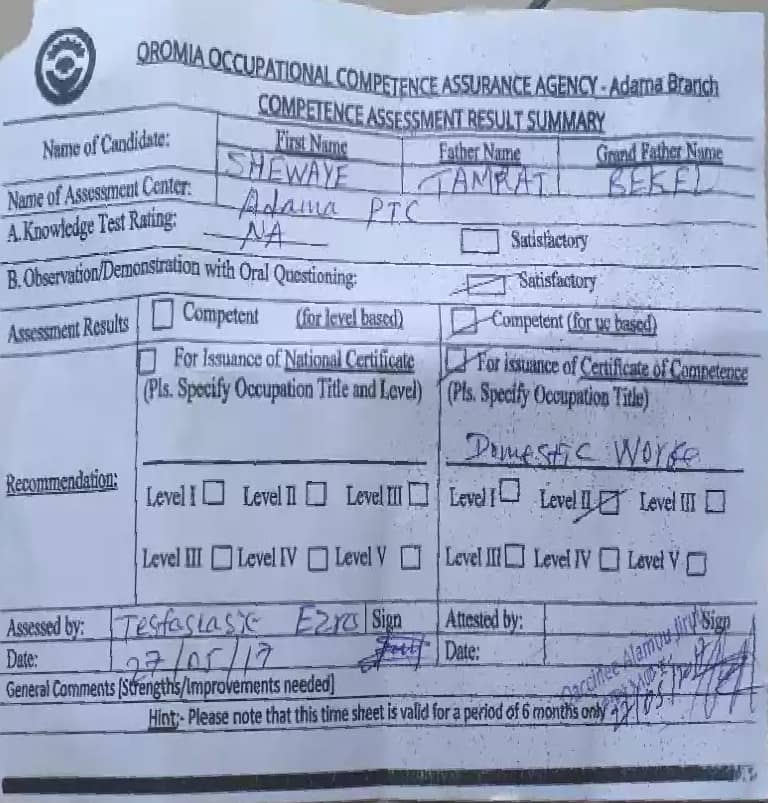 OROMIA OCCUPATIONAL COMPETENCE ASSURANCE AGENCY - Adama Branch
COMPETENCE ASSESSMENT RESULT SUMMARY
Name of Candidate: First Name Father Name Grand Father Name
SHEWAYE TAMRAT BEKEL
Name of Assessment Center: Adama PTC
A. Knowledge Test Rating: NA Satisfactory
B. Observation/Demonstration with Oral Questioning: Satisfactory
Assessment Results Competent (for level based) Competent (for uc based)
For Issuance of National Certificate For issuance of Certificate of Competence
(Pls. Specify Occupation Title and Level) (Pls. Specify Occupation Title)
Domestic Worke
Recommendation:
Level I Level II Level III Level I Level II Level III
Level III Level IV Level V Level III Level IV Level V
Assessed by: Sign Attested by: Sign
Date: 27/05/17 Date:
General Comments [Strengths/Improvements needed]
Hint:- Please note that this time sheet is valid for a period of 6 months only